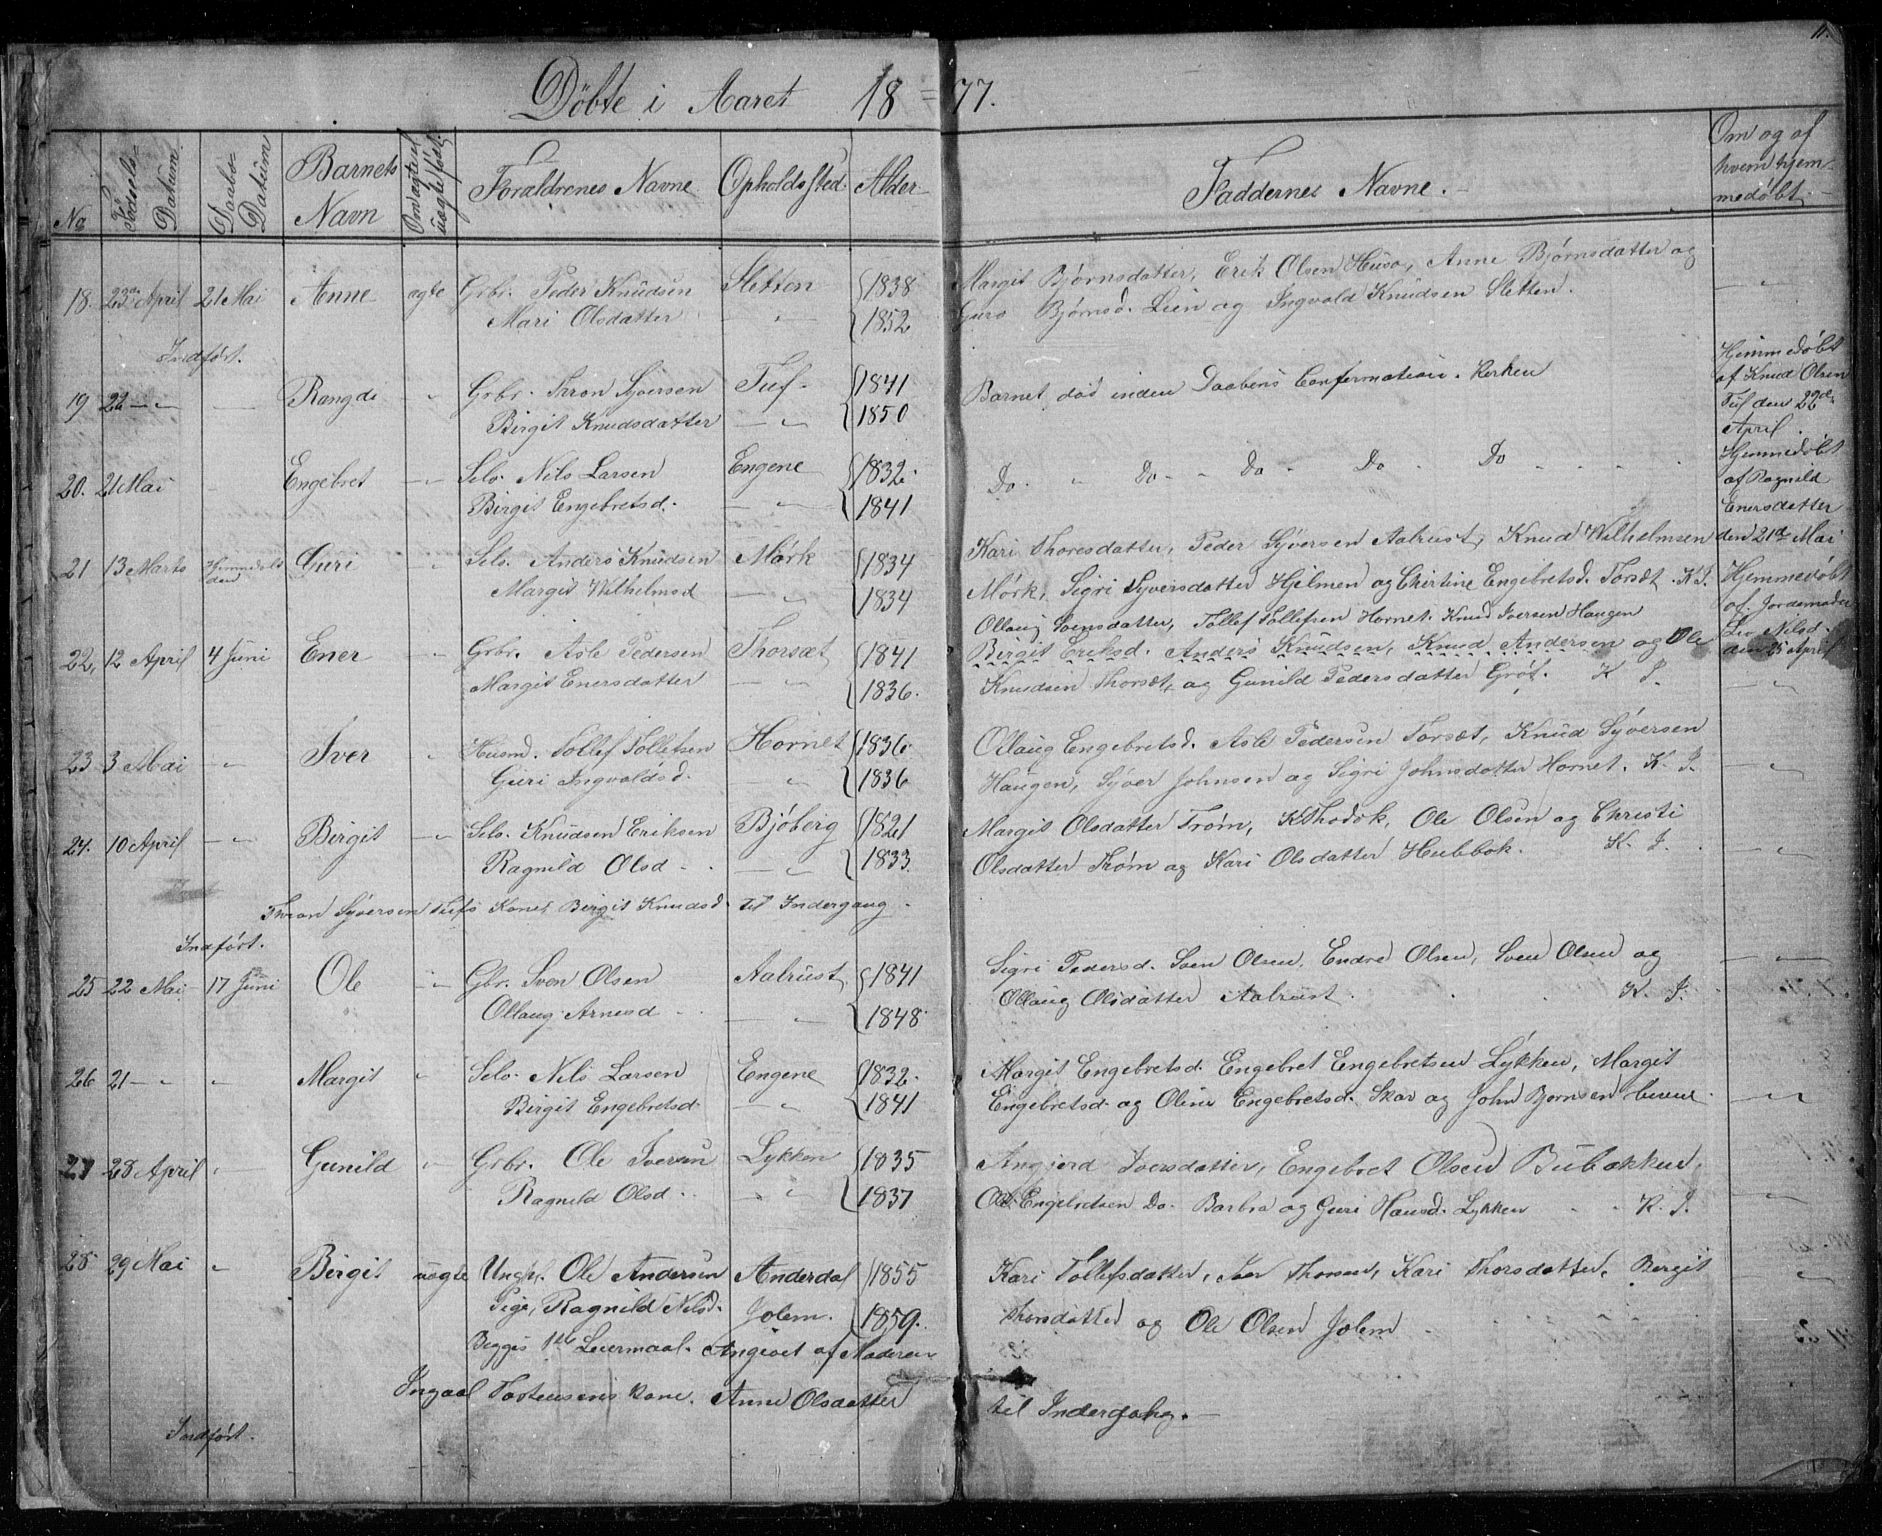 11.
Döbte i Aaret 18=77.
No
Födsels-Datum.
Daabs-Datum
Barnets Navn
Om ægte el. uægte født.
Forældrenes Navne
Opholdssted.
Alder
Faddernes Navne.
Om og af hvem hjemmedøbt.
18. 23de April 21 Mai Anne ægte Grbr. Peder Knudsen Sletten 1838 Margit Bjørnsdatter, Erik Olsen Huso, Anne Bjørnsdatter og
Mari Olsdatter 1852 Guro Bjørnsd. Lien og Ingvald Knudsen Sletten.
Indført.
19 22 Rangdi Grbr. Thron Syversen Tuf 1841 Barnet død inden Daabens Confermation. Kirken Hjemmedøbt
Birgit Knudsdatter 1850 af Knud Olsen
Tuf den 22de
April.
20. 21 Mai Engebret Selv. Nils Larsen Engene 1832 Do. Do Do Do Do Hjemmedøbt
Birgit Engebretsd. 1841 af Ragnild
Enersdatter
den 21de Mai
21 13 Marts Guri Selv. Anders Knudsen Mörk 1834 Kari Thoresdatter, Peder Syversen Aalrust, Knud Wilhelmsen
Margit Wilhelmsd 1834 Mørk, Sigri Syversdatter Hjelmen og Christine Engebretsd. Torsæt. K. J. Hjemmedøbt
af Jordemoder
Liv Nilsd.
den 25 April
Ollaug Svensdatter, Tollef Tollefsen Hornet. Knud Iversen Haugen
22, 12 April 4 Juni Ener Grbr. Asle Pedersen Thorsæt 1841 Birgit Eriksd. Anders Knudsen, Knud Andersen og Ole
Margit Enersdatter 1836. Knudsen Thorsæt, og Gunild Pedersdatter Gröt. K J.
23 3 Mai Iver Husmd. Tollef Tollefsen Hornet 1836 Ollaug Engebretsd. Asle Pedersen Torsæt, Knud Syversen
Guri Ingvaldsd. 1836 Haugen, Syver Johnsen og Sigri Johnsdatter Hornet. K. J.
24. 10 April Birgit Selv. Knudsen Eriksen Bjöberg 1821 Margit Olsdatter Tröm, Ole Olsen og Christi
Ragnild Olsd 1833 Olsdatter Tröm og Kari Olsdatter Hubbok. K. J.
Thron Syversen Tufs Kone, Birgit Knudsd. til Indergang.
Indført.
25 22 Mai 17 Juni Ole Gbr. Sven Olsen Aalrust 1841 Sigri Pedersd. Sven Olsen, Endre Olsen, Sven Olsen og
Ollaug Arnesd 1848 Ollaug Olsdatter Aalrust. K. J.
26 21 Margit Selv. Nils Larsen Engene 1832 Margit Engebretsd. Engebret Engebretsen Lykken, Margit
Birgit Engebretsd. 1841 Engebretsd. og Oline Engebretsd. Skar og John Bjornsen
27 28 April Gunild Grbr. Ole Iversen Lykken 1835 Angjerd Iversdatter, Engebret Olsen Bubakken,
Ragnild Olsd. 1837 Ole Engebretsen Do. Barbra og Guri Hansd. Lykken K. J.
28 29 Mai Birgit uægte Ungk. Ole Andersen Anderdal 1855 Kari Tollefsdatter, Iver Thorsen, Kari Thorsdatter, Bergit
Pige, Ragnild Nilsd. Jolem. 1859. Thorsdatter og Ole Olsen Jolem
Begges 1ste Leiermaal. Angivet af Moderen
Ingval Tostensens Kone. Anne Olsdatter til Indergang.
Indført.